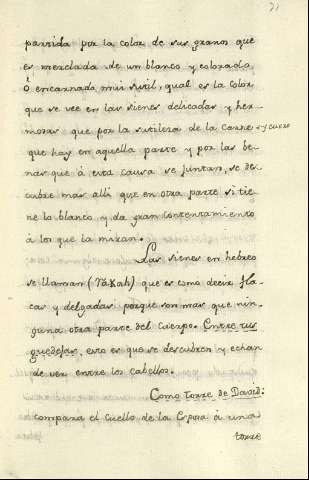 21
partida por la color de sus granos que
es mezclada de un blanco y colorado
ó encarnada mui sutil, qual es la color
que se vee en las sienes delicadas y her-
mosas que por la sutileza de la carne y cuero
que hay en aquella parte y por las be-
nas que á esta causa se juntan, se des-
cubre mas alli que en otra parte si tie-
ne lo blanco y da gran contentamiento
á los que la miran.
Las sienes en hebreo
se llaman (Rákah) que es como decir fla-
cas y delgadas porque son mas que nin-
guna otra parte del cuerpo. Entre tus
guedejas, esto es que se descubren y echan
de ver entre los cabellos.
Como torre de David:
compara el cuello de la Esposa á una
torre